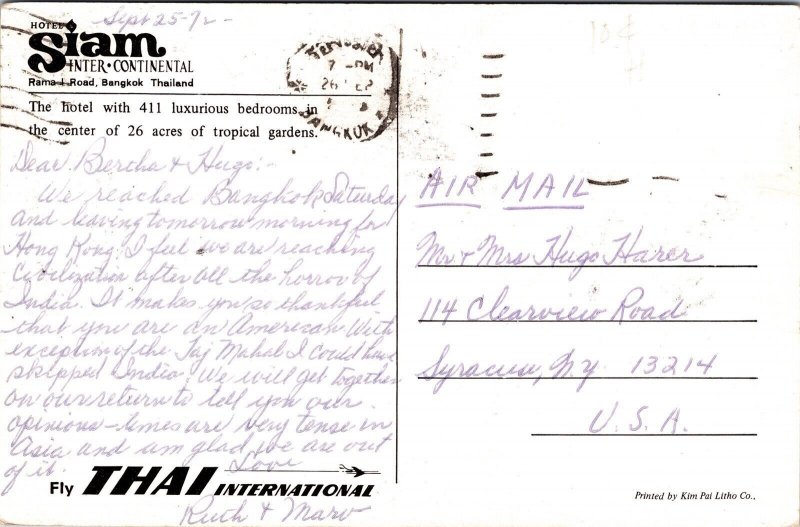 Sept 25-72
HOTEL
Siam
INTER·CONTINENTAL
Rama I Road, Bangkok Thailand
The hotel with 411 luxurious bedrooms in
the center of 26 acres of tropical gardens.
7 PM
26
BANGKOK
10¢
Dear Bertha + Hugo:-
We reached Bangkok Saturday
and leaving tomorrow morning for
Hong Kong. I feel we are reaching
Civilization after all the horror of
India. It makes you so thankful
that you are an American With
exception of the Taj Mahal I could have
skipped India. We will get together
on our return to tell you our
opinions - times are very tense in
Asia and am glad we are out
of it. Love
Ruth + Marv
Fly THAI INTERNATIONAL
AIR MAIL
Mr + Mrs Hugo Harer
114 Clearview Road
Syracuse, N.Y. 13214
U.S.A.
Printed by Kim Pai Litho Co.,